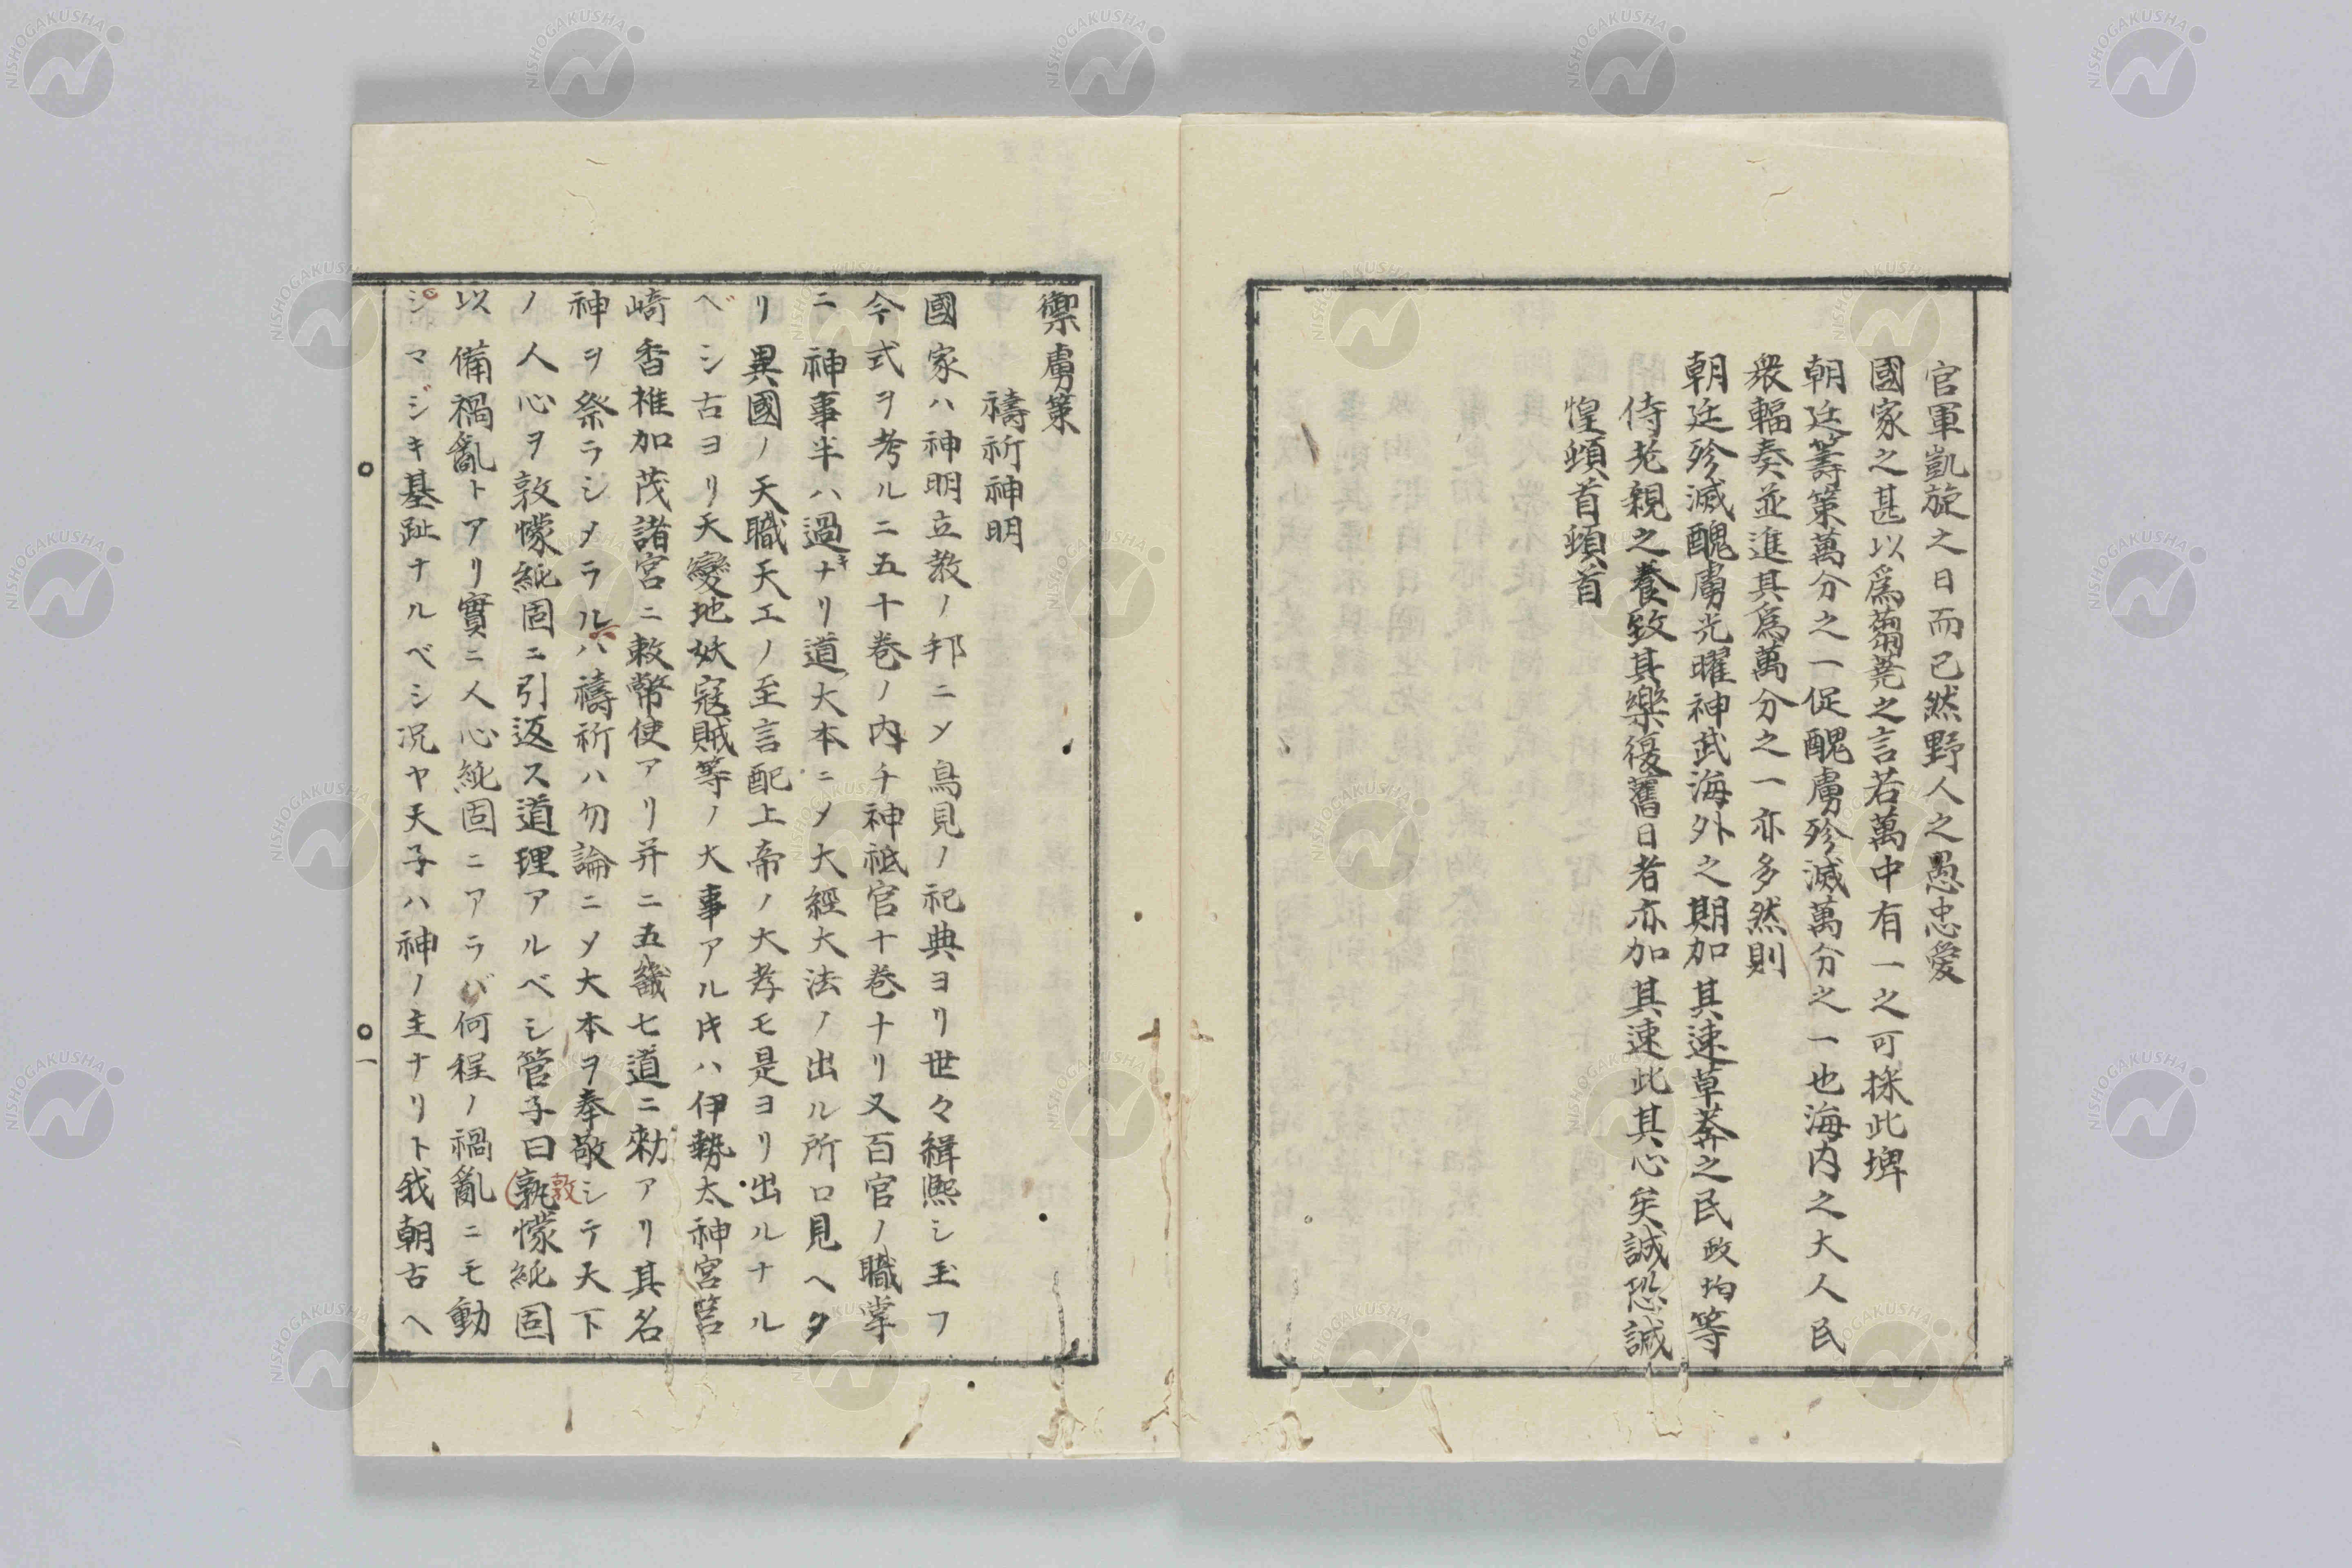 官軍凱旋之日而已然野人之愚忠愛
國家之甚以爲蒭蕘之言若萬中有一之可採此埤
朝廷籌策萬分之一促醜虜殄滅萬分之一也海内之大人民
衆輻奏並進其爲萬分之一亦多然則
朝廷殄滅醜虜光曜神武海外之期加其速草莽之民政均等
侍老親之養致其樂復舊日者亦加其速此其心矣誠恐誠
惶頓首頓首
禦虜策
禱祈神明
國家ハ神明立教ノ邦ニ〆鳥見ノ祀典ヨリ世々緝熈シ玉フ
今式ヲ考ルニ五十巻ノ内チ神祗官十巻ナリ又百官ノ職掌
ニ神事半ハ過キナリ道大本ニ〆大經大法ノ出ル所ロ見ヘタ
リ異國ノ天職天工ノ至言配上帝ノ大孝モ是ヨリ出ルナル
ベシ古ヨリ天變地妖寇賊等ノ大事アル片ハ伊勢太神宮筥
崎香椎加茂諸宮ニ敕幣使アリ并ニ五畿七道ニ勅アリ其名
神ヲ祭ラシメラル六ハ禱祈ハ勿論ニ〆大本ヲ奉敬シテ天下
ノ人心ヲ敦懞純固ニ引返ス道理アルベシ管子曰孰敦懞純固
以備禍亂トアリ實ニ人心純固ニアラバ何程ノ禍亂ニモ動
ジマジキ基趾ナルベシ况ヤ天子ハ神ノ主ナリト我朝古ヘ
一
NISHOGAKUSHA